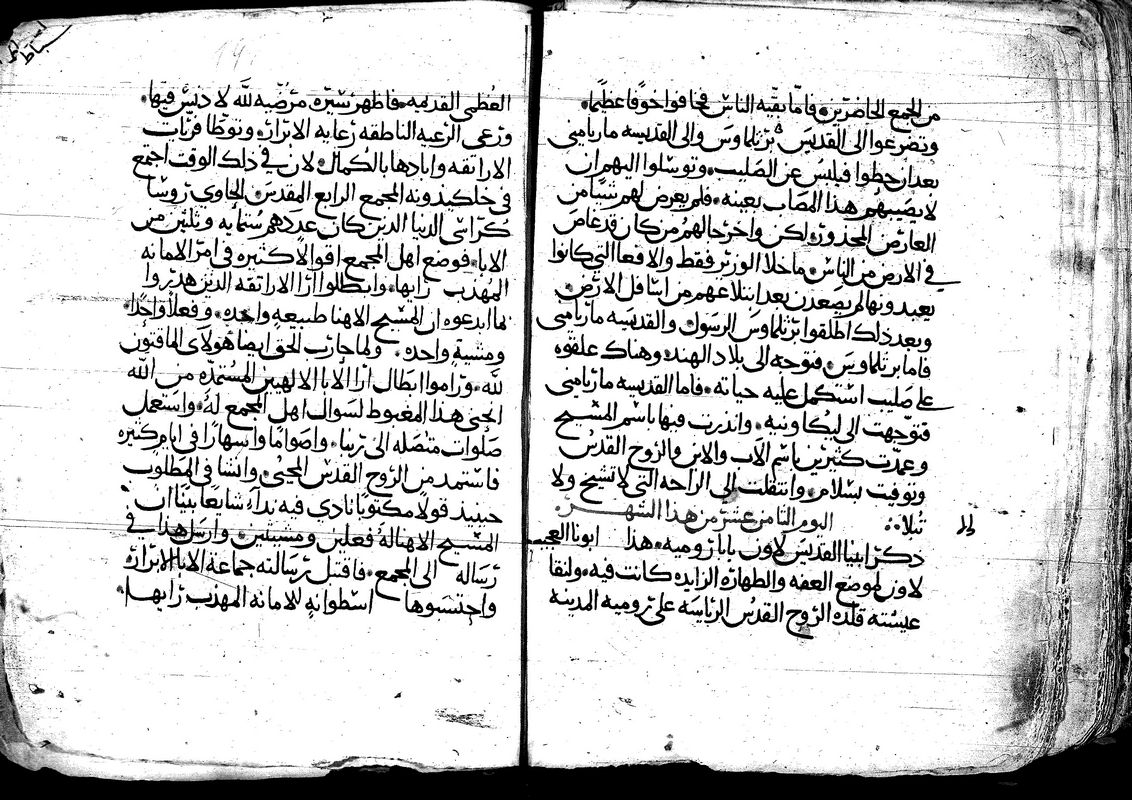 من الجمع الحاضرين. فاما بقيه الناس فخافوا خوفا عظيما.
وتضرعوا الى القديس برتلماوس والى القديسه مارياميني
بعد ان حطوا فيلبس عن الصليب. وتوسلوا اليهم ان
لا يصيبهم هذا المصاب بعينه. فلم يعرض لهم شيئا من
العارض المحذور. لكن واخرجا لهم من كان قد غاص
في الارض من الناس. ما خلا الوزير فقط والافعا التي كانوا
يعبدونها لم يصعدن بعد ابتلاعهم من اسافل الارض.
وبعد ذلك اطلقوا برتلماوس الرسول والقديسه مارياميني
فاما برتلماوس. فتوجه الى بلاد الهند. وهناك علقوه
على صليب استكمل عليه حياته. فاما القديسه مارياميني
فتوجهت الى ليكاونيه. وانذرت فيها باسم المسيح
وعمدت كثيرين باسم الاب والابن والروح القدس
وتوفيت بسلام. وانتقلت الى الراحه التي لا تشيخ ولا
تبلا. اليوم الثامن عشر من هذا الشهر.
ذكر ابينا القديس لاون بابا روميه. هذا ابونا العجيب
لاون لموضع العفه والطهاره الزايده كانت فيه. ولنقا
عيشته قلده الروح القدس الرياسه على روميه المدينه
العظمى القديمه. فاظهر سيره مرضيه لله لا دنس فيها.
ورعى الرعيه الناطقه رعايه الابرار. وتوطا قريات
الاراتقه وابادها بالكمال. لان في ذلك الوقت اجتمع
في خلكيذونه المجمع الرابع المقدس. الحاوي روسا
كراسي الدنيا الذين كان عددهم ستمايه وثلثين من
الابا. فوضع اهل المجمع اقوالا كثيره في امر الامانه
المهذب رايها. وابطلوا ارا الاراتقه الذين هذروا
لما ابدعوه ان المسيح الاهنا طبيعه واحده. وفعلا واحدا.
ومشيه واحده. ولما حارب الحق ايضا هولاى الماقتون
لله. وراموا ابطال ارا الابا الالهيين المستمده من الله
الحي هذا المغبوط لسوال اهل المجمع له. واستعمل
صلوات متصله الى ربنا. واصواما واسهارا في ايام كثيره
فاستمد من الروح القدس المحيي. وانشا في المطلوب
حينيذ قولا مكتوبا نادي فيه نداء شايعا بينا ان
المسيح الاهنا له فعلين ومشيتين. وارسل هذا في
رساله الى المجمع. فاقتبل رسالته جماعه الابا الابرار.
واحتسبوها اسطوانه للامانه المهذب رايها.